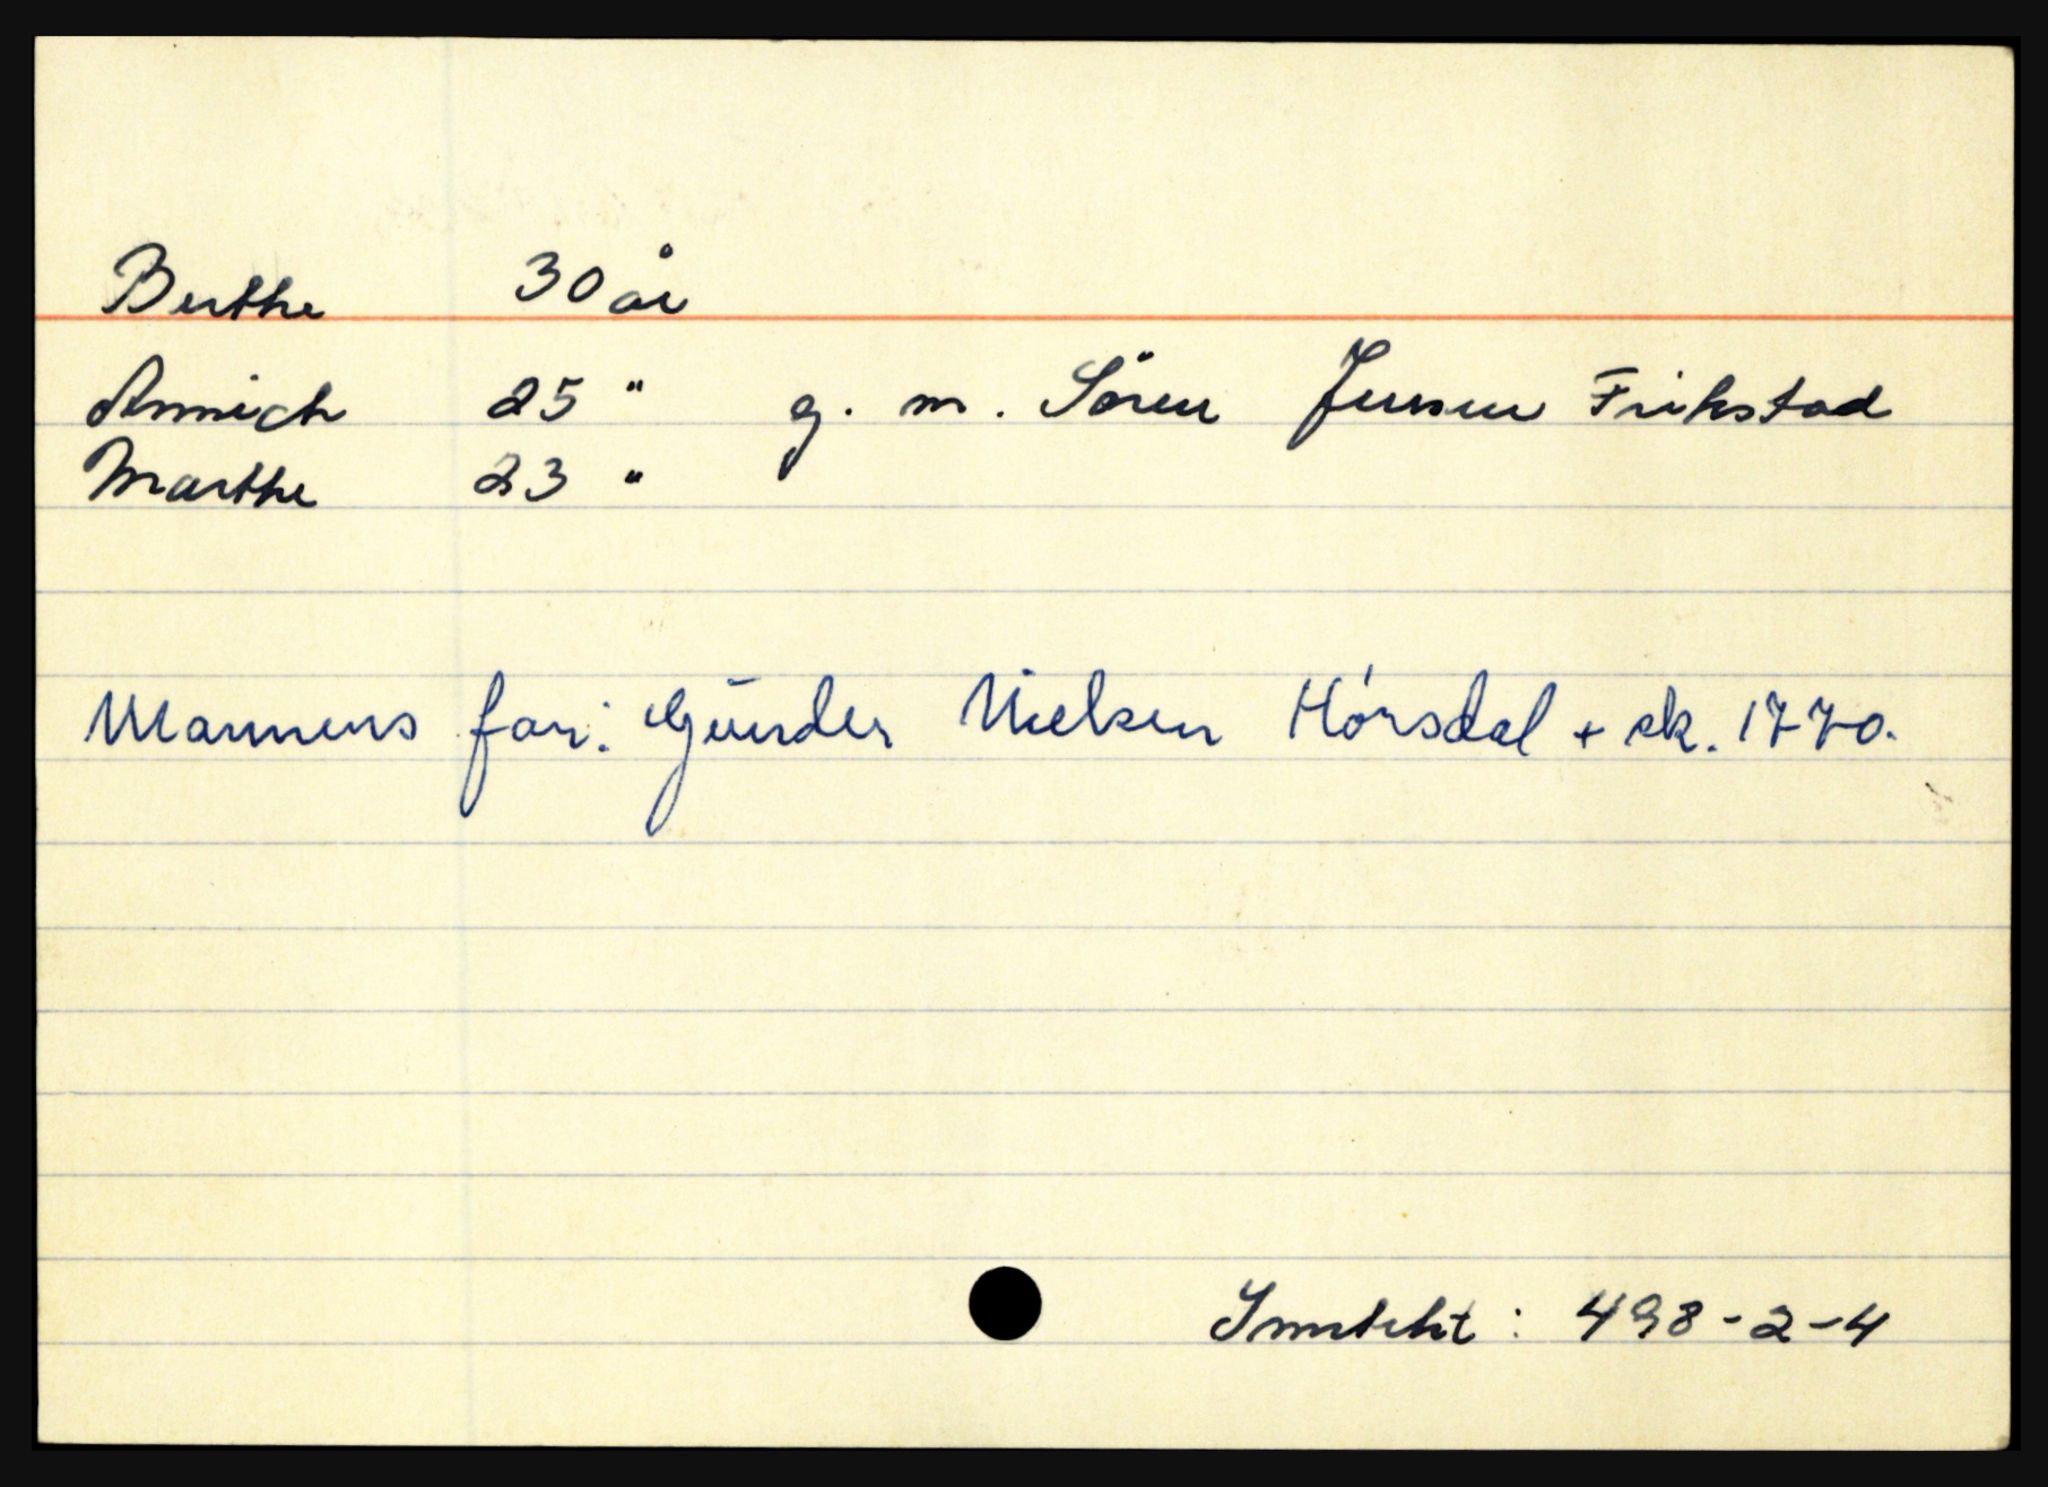 Berthe 30 år
Annich 25 " g. m. Sören Jensen Frikstad
Marthe 23 "
Mannens far: Gunder Nielsen Hørsdal + sk. 1770.
Inntekt : 498-2-4